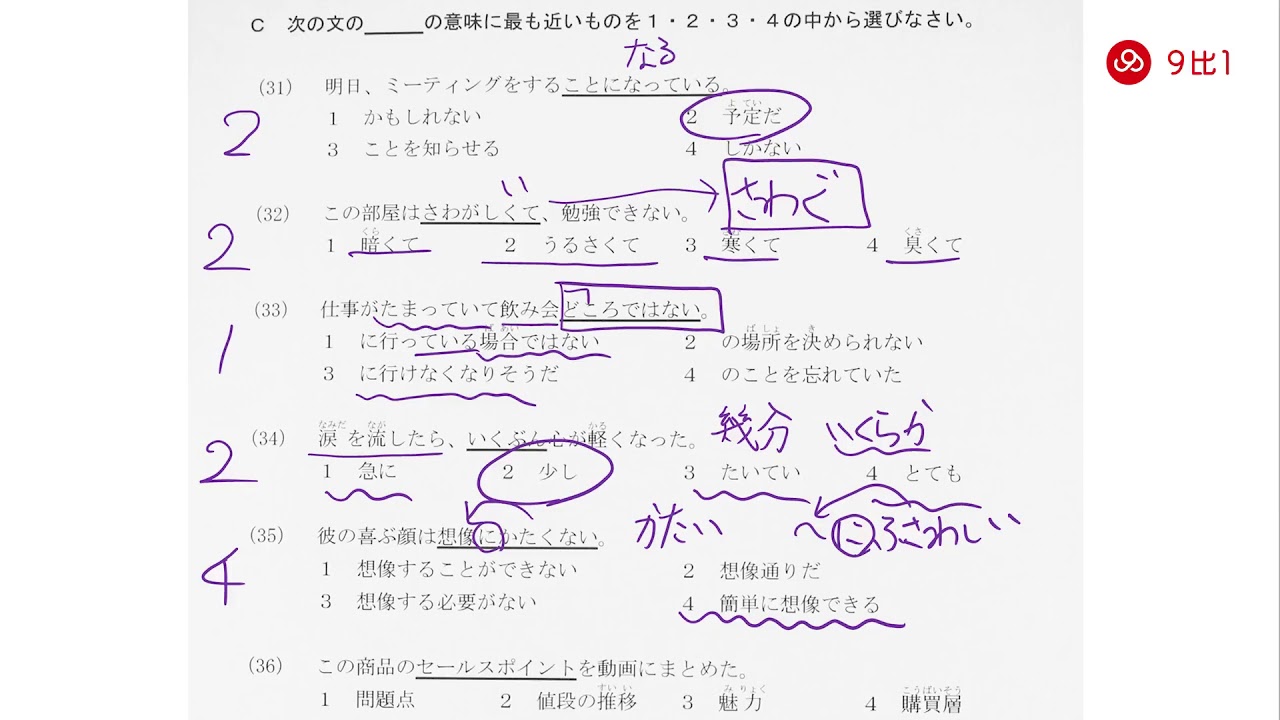 C 次の文の_____の意味に最も近いものを1・2・3・4の中から選びなさい。
9比1
なる
(31) 明日、ミーティングをすることになっている。
2
1 かもしれない 2 予定だ
よてい
3 ことを知らせる 4 しかない
い
さわぐ
(32) この部屋はさわがしくて、勉強できない。
2
1 暗くて 2 うるさくて 3 寒くて 4 臭くて
くら さむ くさ
(33) 仕事がたまっていて飲み会どころではない。
1
1 に行っている場合ではない 2 の場所を決められない
ばあい ばしょ き
3 に行けなくなりそうだ 4 のことを忘れていた
幾分 いくらか
(34) 涙を流したら、いくぶん心が軽くなった。
なみだ なが かる
2
1 急に 2 少し 3 たいてい 4 とても
かたい 〜にふさわしい
(35) 彼の喜ぶ顔は想像にかたくない。
4
1 想像することができない 2 想像通りだ
3 想像する必要がない 4 簡単に想像できる
(36) この商品のセールスポイントを動画にまとめた。
1 問題点 2 値段の推移 3 魅力 4 購買層
すいい みりょく こうばいそう